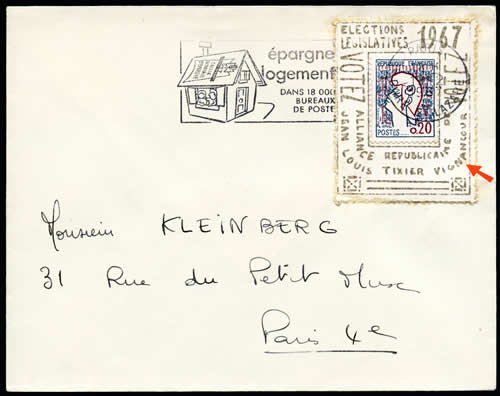 ELECTIONS
LEGISLATIVES 1967
VOTEZ
REPUBLIQUE FRANÇAISE
POSTES 0,20
ALLIANCE REPUBLICAINE
JEAN LOUIS TIXIER VIGNANCOUR
épargne
logement
DANS 18 000
BUREAUX
DE POSTE
Monsieur KLEINBERG
31 Rue du Petit Musc
Paris 4e